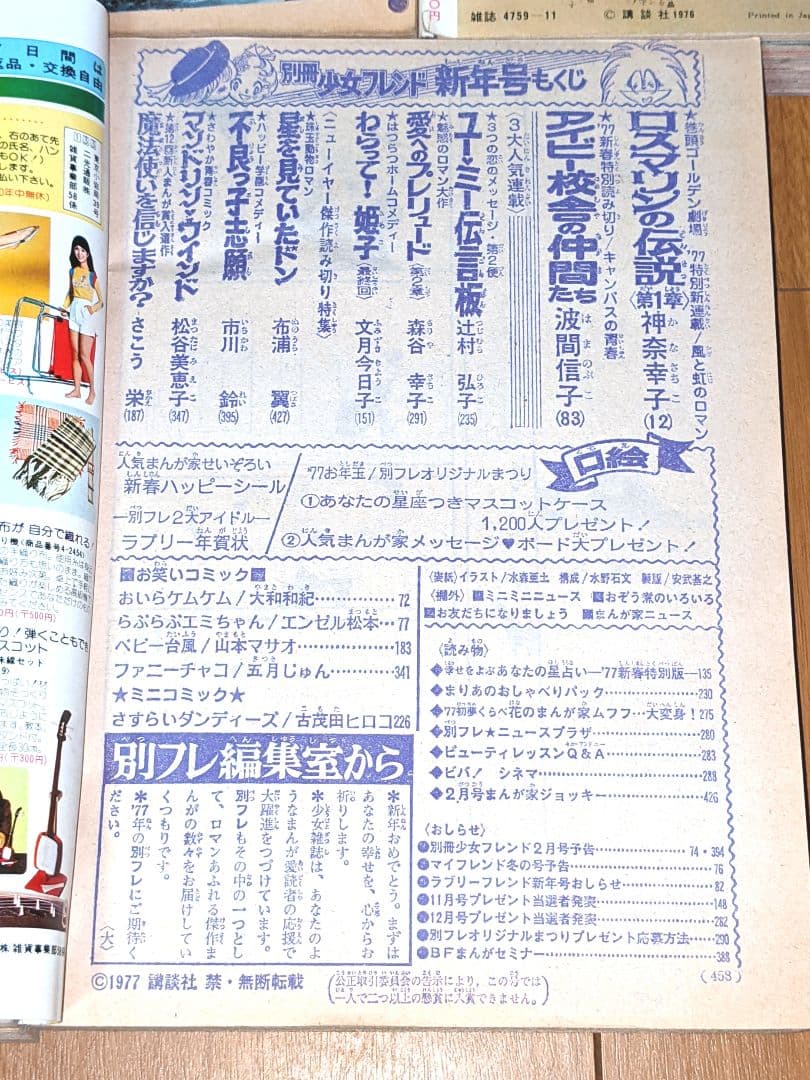 雑誌 4759-11
©講談社1976
Printed in Jap
別冊少女フレンド 新年号もくじ
★巻頭ゴールデン劇場 '77特別新連載/風と虹のロマン
ロスマリンの伝説〈第1章〉 神奈幸子(12)
★'77新春特別読み切り/キャンパスの青春
アイビー校舎の仲間たち 波間信子(83)
〈3大人気連載〉
★3つの恋のメッセージ 第2便
ユー・ミー伝言板 辻村弘子(235)
★魅惑のロマン大作
愛へのプレリュード〈第5章〉 森谷幸子(291)
★はつらつホームコメディー
わらって!姫子〈最終回〉 文月今日子(151)
〈ニューイヤー傑作読み切り特集〉
★珠玉動物ロマン
星を見ていたドン 布浦翼(427)
★ハッピー学園コメディー
不良っ子志願 市川鈴(395)
★さわやか青春コミック
マンドリン・ウインド 松谷美恵子(347)
★第12回新人まんが賞入選作
魔法使いを信じますか? さこう栄(187)
口絵
人気まんが家せいぞろい
新春ハッピーシール
—別フレ2大アイドル—
ラブリー年賀状
'77お年玉/別フレオリジナルまつり
①あなたの星座つきマスコットケース
1,200人プレゼント!
②人気まんが家メッセージ♥ボード大プレゼント!
お笑いコミック
おいらケムケム/大和和紀…72
らぶらぶエミちゃん/エンゼル松本…77
ベビー台風/山本マサオ…183
ファニーチャコ/五月じゅん…341
★ミニコミック★
さすらいダンディーズ/古茂田ヒロコ226
〈表紙〉イラスト/水森亜土 構成/水野石文 製版/安武基之
〈欄外〉ミニミニニュース おぞう煮のいろいろ
お友だちになりましょう まんが家ニュース
〈読み物〉
◆幸せをよぶあなたの星占い—'77新春特別版—135
◆まりあのおしゃべりパック…230
◆'77初夢くらべ花のまんが家ムフフ…大変身!275
◆別フレ★ニュースプラザ…280
◆ビューティレッスンQ&A…283
◆ビバ! シネマ…288
◆2月号まんが家ジョッキー…426
〈おしらせ〉
別冊少女フレンド2月号予告…74・394
マイフレンド冬の号予告…76
ラブリーフレンド新年号おしらせ…82
11月号プレゼント当選者発表…148
12月号プレゼント当選者発表…262
別フレオリジナルまつりプレゼント応募方法…290
BFまんがセミナー…388
(453)
別フレ編集室から
★新年おめでとう。まずは
あなたの幸せを、心からお
祈りします。
★少女雑誌は、あなたのよ
うなまんが愛読者の応援で
大躍進をつづけています。
別フレもその中の一つとし
て、ロマンあふれる傑作ま
んがの数々をお届けしてい
くつもりです。
★'77年の別フレにご期待く
ださい。
〈大〉
©1977 講談社 禁・無断転載
(公正取引委員会の告示により、この号では
一人で二つ以上の懸賞に入賞できません。)
日間は
返品・交換自由
右のあて先
の氏名、ハン
もOK!)
します。
払い下さい。
年中無休)
布が 自分で織れる!
り機(商品番号4-2456)
り!弾くこともでき
スコット
味線セット
株 雑貨事業部58